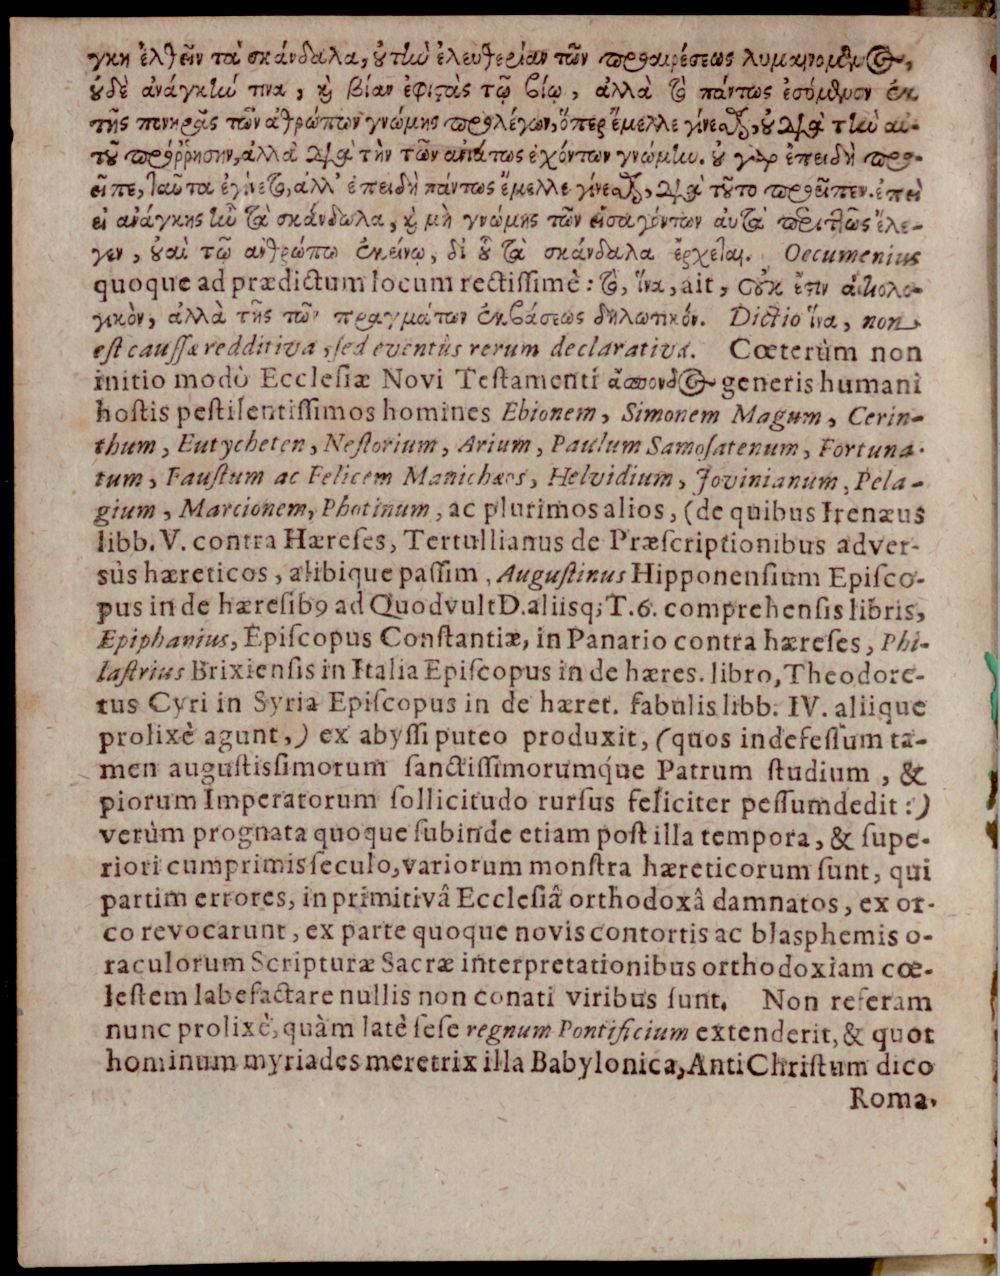 γκη ἐλθεῖν τὰ σκάνδαλα, οὐ τὴν ἐλευθερίαν τῶν προαιρέσεως λυμαινόμενος,
οὐδὲ ἀνάγκην τινα, καὶ βίαν ἐφιστὰς τῷ βίῳ, ἀλλὰ τὸ πάντως ἐσόμενον ἐκ
τῆς πονηρᾶς τῶν ἀθρώπων γνώμης προλέγων, ὅπερ ἔμελλε γίνεσθαι, οὐ διὰ τὴν αὐ-
τοῦ πρόῤῥησιν, ἀλλὰ διὰ τὴν τῶν ἀνιάτως ἐχόντων γνώμην. οὐ γὰρ ἐπειδὴ προ-
εῖπε, ταῦτα ἐγίνετο, ἀλλ' ἐπειδὴ πάντως ἔμελλε γίνεσθαι, διὰ τοῦτο προεῖπεν. ἐπεὶ
εἰ ἀνάγκης ἦν τὰ σκάνδωλα, καὶ μὴ γνώμης τῶν εἰσαγόντων αὐτὰ περιττῶς ἔλε-
γεν, οὐαὶ τῷ ἀνθρώπῳ ἐκείνῳ, δι' οὗ τὰ σκάνδαλα ἔρχεται. Oecumenius
quoque ad prædictum locum rectiſſimè: τὸ, ἵνα, ait, οὐκ ἔστιν αἰτιολο-
γικὸν, ἀλλὰ τῆς τῶν πραγμάτων ἐκβάσεως δηλωτικόν. Dictio ἵνα, non
eſt cauſſæ redditiva, ſed eventùs rerum declarativa. Cœterùm non
initio modò Ecclesiæ Novi Teſtamenti ἄσπονδος generis humani
hoſtis peſtilentiſſimos homines Ebionem, Simonem Magum, Cerin-
thum, Eutycheten, Neſtorium, Arium, Paulum Samoſatenum, Fortuna-
tum, Fauſtum ac Felicem Manichæos, Helvidium, Jovinianum, Pela-
gium, Marcionem, Photinum, ac plurimos alios, (de quibus Irenæus
libb. V. contra Hæreſes, Tertullianus de Præſcriptionibus adver-
sùs hæreticos, alibique paſſim, Auguſtinus Hipponenſium Epiſco-
pus in de hæreſibꝰ ad QuodvultD. aliisq; T. 6. comprehenſis libris,
Epiphanius, Epiſcopus Conſtantiæ, in Panario contra hæreſes, Phi-
laſtrius Brixienſis in Italia Epiſcopus in de hæres. libro, Theodore-
tus Cyri in Syria Epiſcopus in de hæret. fabulis libb. IV. aliique
prolixè agunt,) ex abyſſi puteo produxit, (quos indefeſſum ta-
men auguſtissimorum ſanctiſſimorumq́ue Patrum ſtudium, &
piorum Imperatorum ſollicitudo rurſus feliciter peſſumdedit:)
verùm prognata quoque ſubinde etiam poſt illa tempora, & ſupe-
riori cumprimis ſeculo, variorum monſtra hæreticorum ſunt, qui
partim errores, in primitivâ Eccleſiâ orthodoxâ damnatos, ex or-
co revocarunt, ex parte quoque novis contortis ac blaſphemis o-
raculorum Scripturæ Sacræ interpretationibus orthodoxiam cœ-
leſtem labefactare nullis non conati viribus ſunt. Non referam
nunc prolixè, quàm latè ſeſe regnum Pontificium extenderit, & quot
hominum myriades meretrix illa Babylonica, AntiChriſtum dico
Roma-